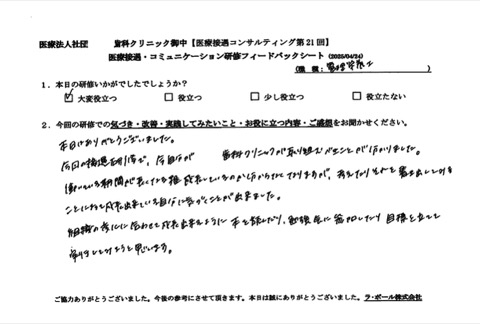 医療法人社団 歯科クリニック御中【医療接遇コンサルティング第21回】
医療接遇・コミュニケーション研修フィードバックシート(2025/04/24)
(職種: 歯科衛生士)
1.本日の研修いかがでしたでしょうか?
☑大変役立つ □役立つ □少し役立つ □役立たない
2.今回の研修での気づき・改善・実践してみたいこと・お役に立つ内容・ご感想をお聞かせください。
本日はありがとうございました。
今回の接遇研修で、今自分が 歯科クリニックが取り組むべきことが分かりました。
働いている期間が長くなる程成長しているのか分からなくなりますが、考えたりそれを書き出してみる
ことによって成長出来ている自分に気づくことが出来ました。
組織の変化に合わせて成長出来るように本を読んだり、勉強会に参加したり目標を立てて
実行してみようと思います。
ご協力ありがとうございました。今後の参考にさせて頂きます。本日は誠にありがとうございました。ラ・ポール株式会社